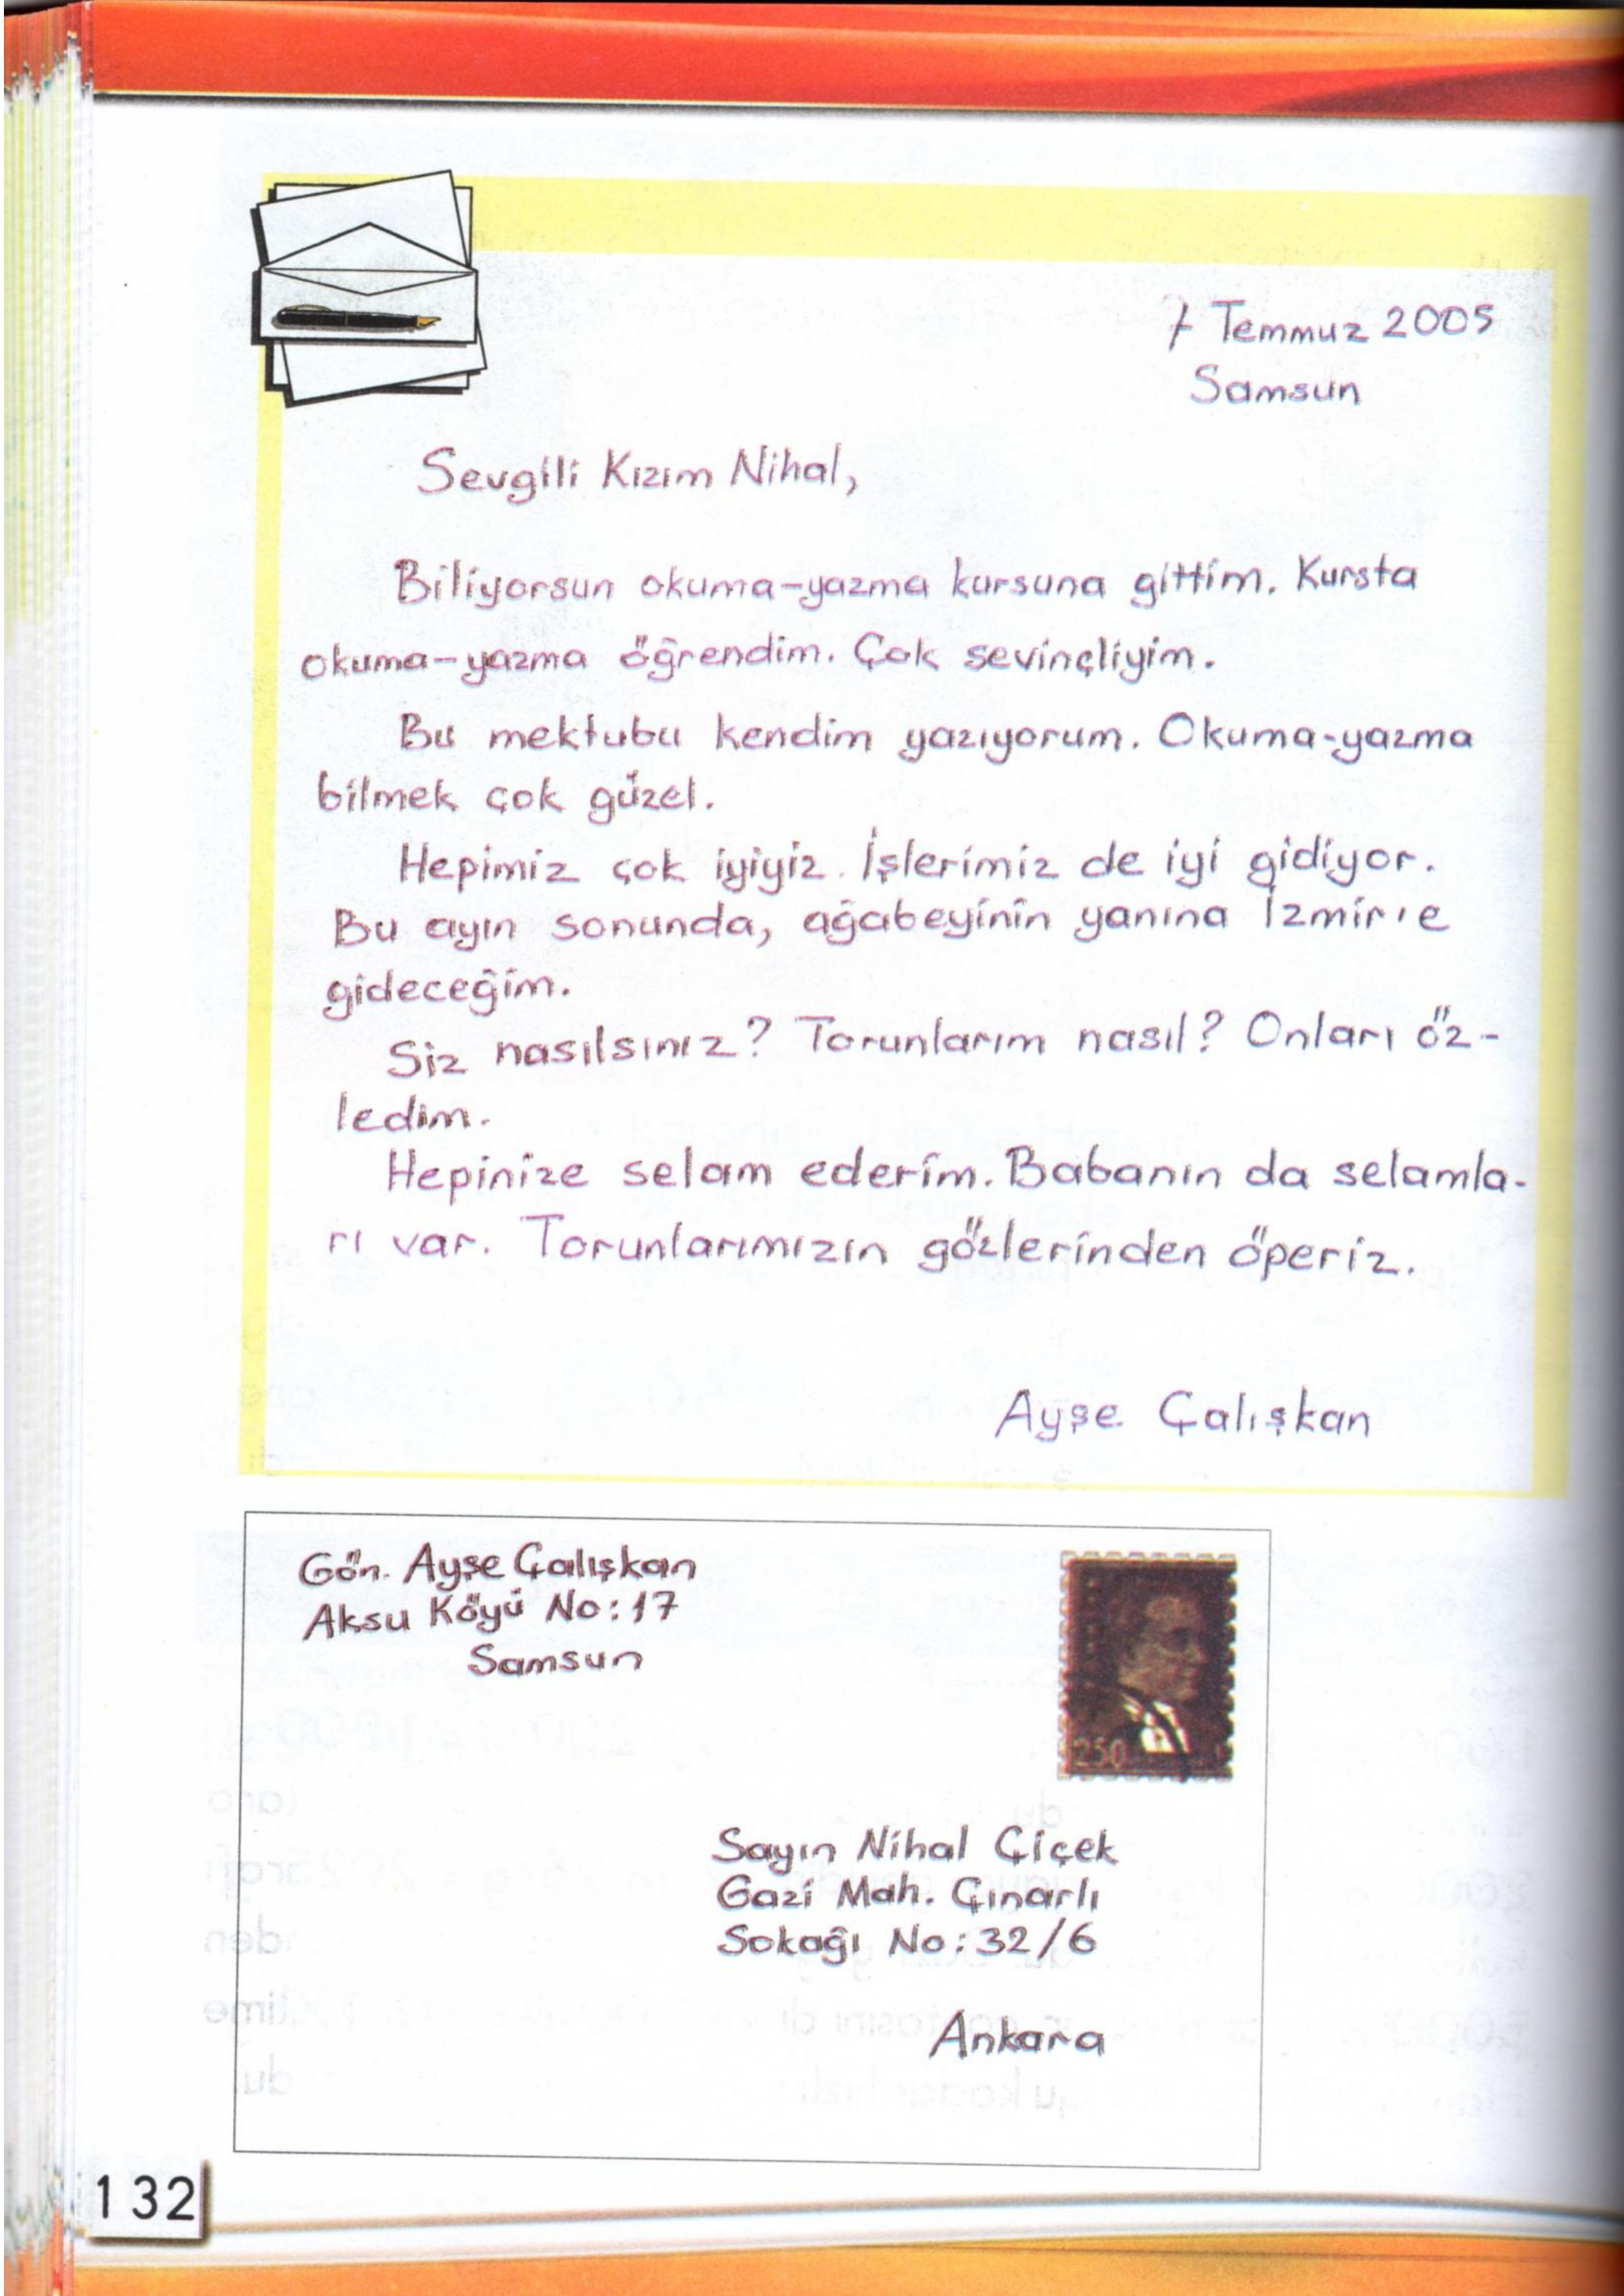 7 Temmuz 2005
Samsun
Sevgili Kızım Nihal,
Biliyorsun okuma-yazma kursuna gittim. Kursta
okuma-yazma öğrendim. Çok sevinçliyim.
Bu mektubu kendim yazıyorum. Okuma-yazma
bilmek çok güzel.
Hepimiz çok iyiyiz. İşlerimiz de iyi gidiyor.
Bu ayın sonunda, ağabeyinin yanına İzmir'e
gideceğim.
Siz nasılsınız? Torunlarım nasıl? Onları öz-
ledim.
Hepinize selam ederim. Babanın da selamla-
rı var. Torunlarımızın gözlerinden öperiz.
Ayşe Çalışkan
Gön. Ayşe Çalışkan
Aksu Köyü No: 17
Samsun
250
Sayın Nihal Çiçek
Gazi Mah. Çınarlı
Sokağı No: 32/6
Ankara
132